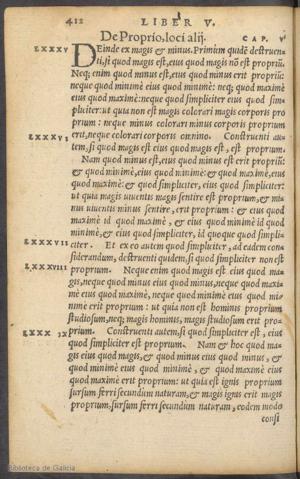 412 LIBER V.
De Proprio, loci alij. CAP. V
LXXXV DEinde ex magis & minus. Primùm quidē destruen-
ti, si quod magis est, eius quod magis nō est propriū.
Neq; enim quod minus est, eius quod minus erit propriū:
neque quod minimè eius quod minimè: neq; quod maximè
eius quod maximè: neque quod simpliciter eius quod sim-
pliciter: ut quia non est magis colorari magis corporis pro
prium: neque minus colorari minus corporis proprium
LXXXVI erit, neque colorari corporis omnino. Construenti au-
tem, si quod magis est eius quod magis est, est proprium.
Nam quod minus est, eius quod minus est erit propriū:
& quod minimè, eius quod minimè: & quod maximè, eius
quod maximè: & quod simpliciter, eius quod simpliciter:
ut quia magis uiuentis magis sentire est proprium, & mi-
nus uiuentis minus sentire, erit proprium: & eius quod
maximè id quod maximè, & eius quod minimè id quod
minimè, & eius quod simpliciter, id quoque quod simpli-
LXXXVII citer. Et ex eo autem quod simpliciter, ad eadem con-
siderandum, destruenti quidem, si quod simpliciter non est
LXXXVIII proprium. Neque enim quod magis eius quod ma-
gis, neque quod minus eius quod minus, neque quod maxi-
mè eius quod maximè, neque quod minimè eius quod mi-
nimè erit proprium: ut quia non est hominis proprium
studiosum, neq; magis hominis, magis studiosum erit pro-
LXXXIX prium. Construenti autem, si quod simpliciter est, eius
quod simpliciter est proprium. Nam & hoc quod ma-
gis eius quod magis, & quod minus eius quod minus, &
quod minimè eius quod minimè, & quod maximè eius
quod maximè erit proprium: ut quia est ignis proprium
sursum ferri secundum naturam, & magis ignis erit magis
proprium, sursum ferri secundum naturam, eodem modo
consi
Biblioteca de Galicia